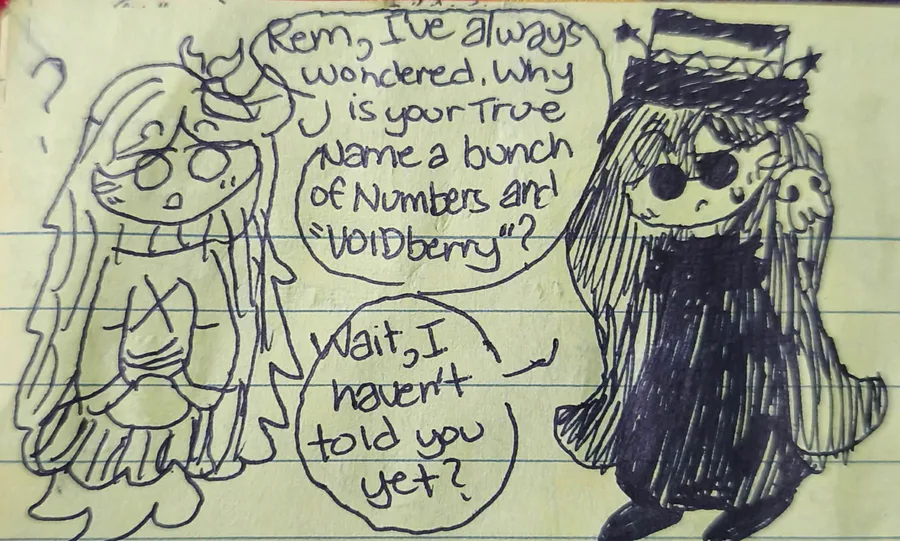 ?
Rem, I've always
wondered. Why
is your True
Name a bunch
of Numbers and
"VOIDberry"?
Wait, I
haven't
told you
yet?